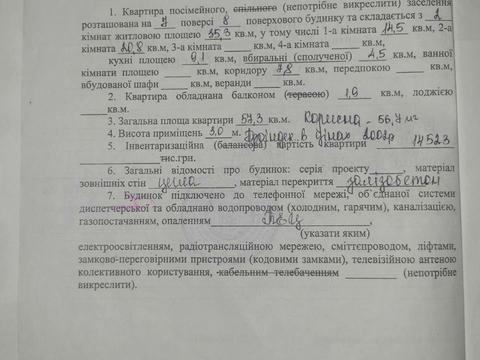 1. Квартира посімейного, спільного (непотрібне викреслити) заселення
розташована на 7 поверсі 8 поверхового будинку та складається з 2
кімнат житловою площею 35,3 кв.м, у тому числі 1-а кімната 14,5 кв.м, 2-а
кімната 20,8 кв.м, 3-а кімната ____ кв.м, 4-а кімната ____ кв.м,
кухні площею 9,1 кв.м, вбиральні (сполученої) 4,5 кв.м, ванної
кімнати площею ____ кв.м, коридору 7,8 кв.м, передпокою ____ кв.м,
вбудованої шафи ____ кв.м, веранди ____ кв.м.
2. Квартира обладнана балконом (терасою) 1,9 кв.м, лоджією
____кв.м.
3. Загальна площа квартири 57,3 кв.м. Корисна - 56,7 м²
4. Висота приміщень 3,0 м. в 2002р
5. Інвентаризаційна (балансова) вартість квартири 14523
____ тис.грн.
6. Загальні відомості про будинок: серія проекту____, матеріал
зовнішніх стін цегла, матеріал перекриття залізобетон
7. Будинок підключено до телефонної мережі, об'єднаної системи
диспетчерської та обладнано водопроводом (холодним, гарячим), каналізацією,
газопостачанням, опаленням ТЕЦ
(указати яким)
електроосвітленням, радіотрансляційною мережею, сміттєпроводом, ліфтами,
замково-переговорними пристроями (кодовими замками), телевізійною антеною
колективного користування, кабельним телебаченням ____ (непотрібне
викреслити).